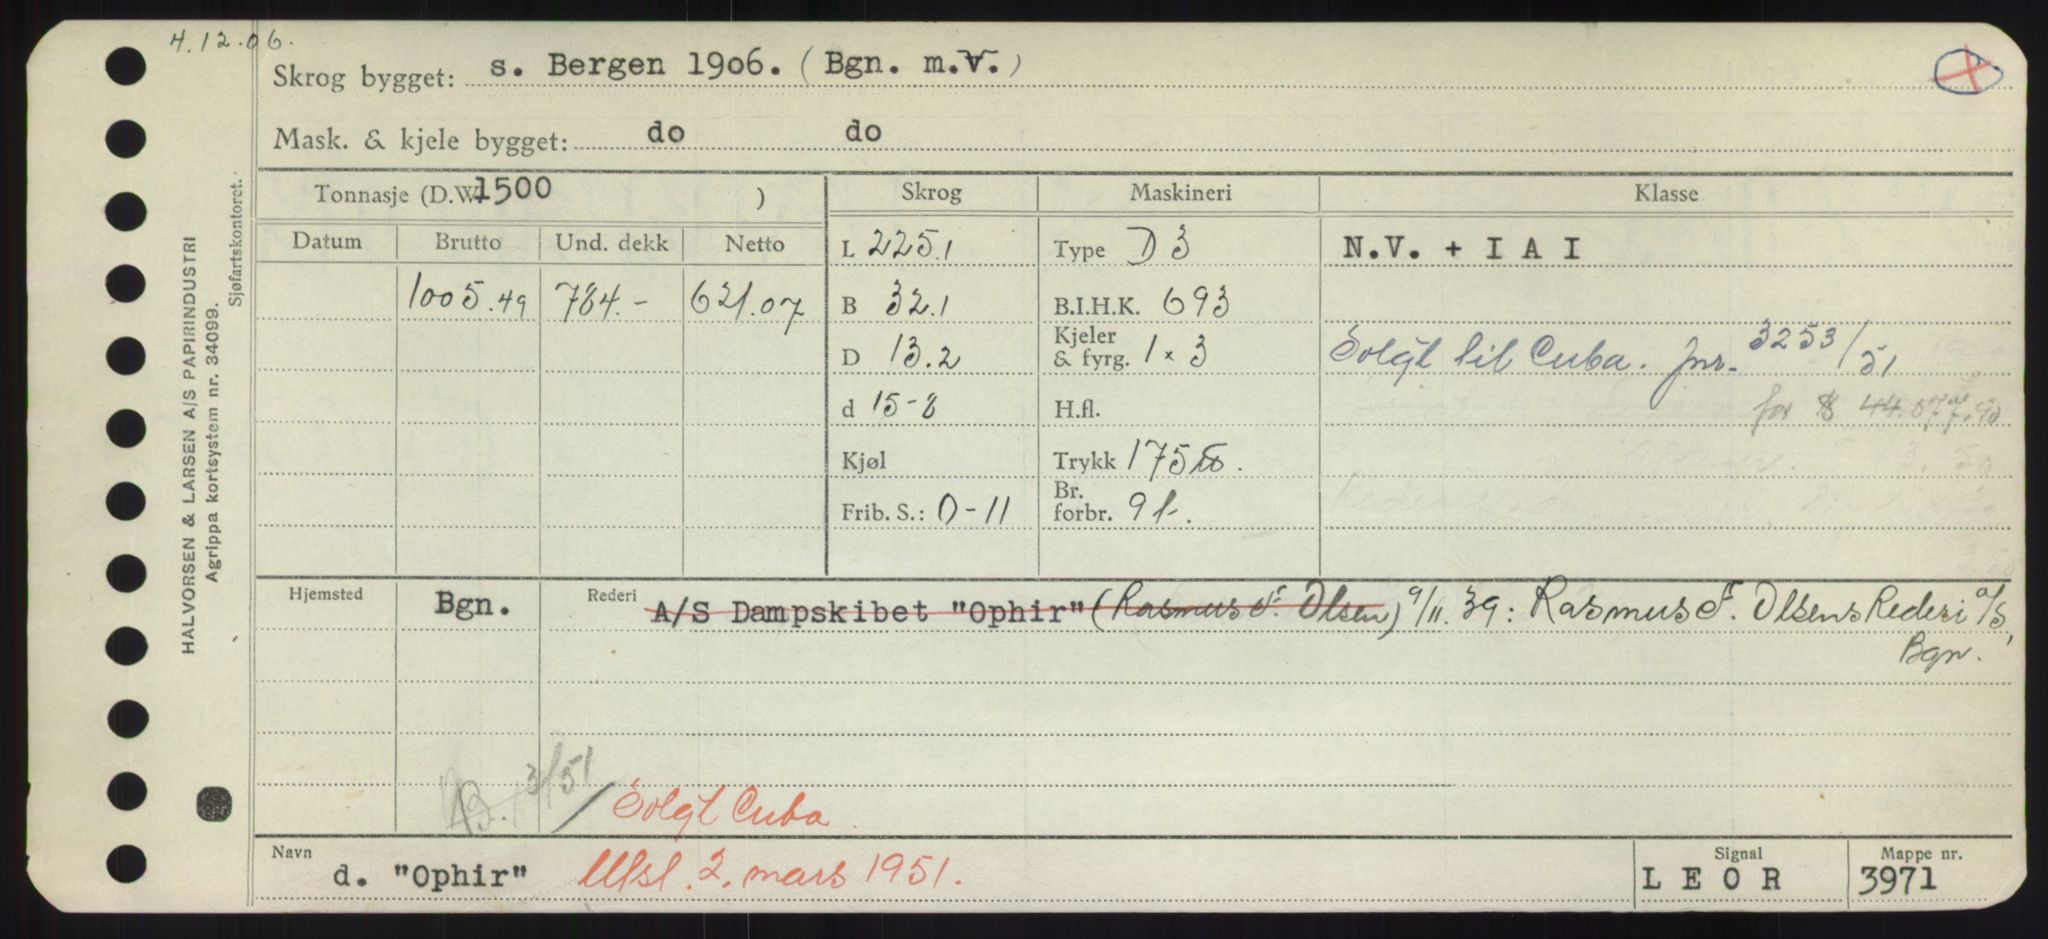 4.12.06.
Skrog bygget: s. Bergen 1906. (Bgn. m.V.)
Mask. & kjele bygget: do do
Tonnasje (D.W. 1500 ) Skrog Maskineri Klasse
Datum Brutto Und. dekk Netto L 225.1 Type D 3 N.V. + I A I
1005.49 784.- 621.07 B 32.1 B.I.H.K. 693
D 13.2 Kjeler & fyrg. 1 x 3 Solgt til Cuba. Jnr. 3253/51
d 15-8 H.fl. for $ 44.077.90
Kjøl Trykk 175 lb.
Frib. S.: 0-11 Br. forbr. 9 t.
Hjemsted Bgn. Rederi A/S Dampskibet "Ophir" (Rasmus F. Olsen) 9/11.39: Rasmus F. Olsens Rederi A/S,
Bgn.
3/51
Solgt Cuba.
Navn d. "Ophir" Utsl. 2. mars 1951. Signal L E O R Mappe nr. 3971
HALVORSEN & LARSEN A/S PAPIRINDUSTRI
Agrippa kortsystem nr. 34099.
Sjøfartskontoret.